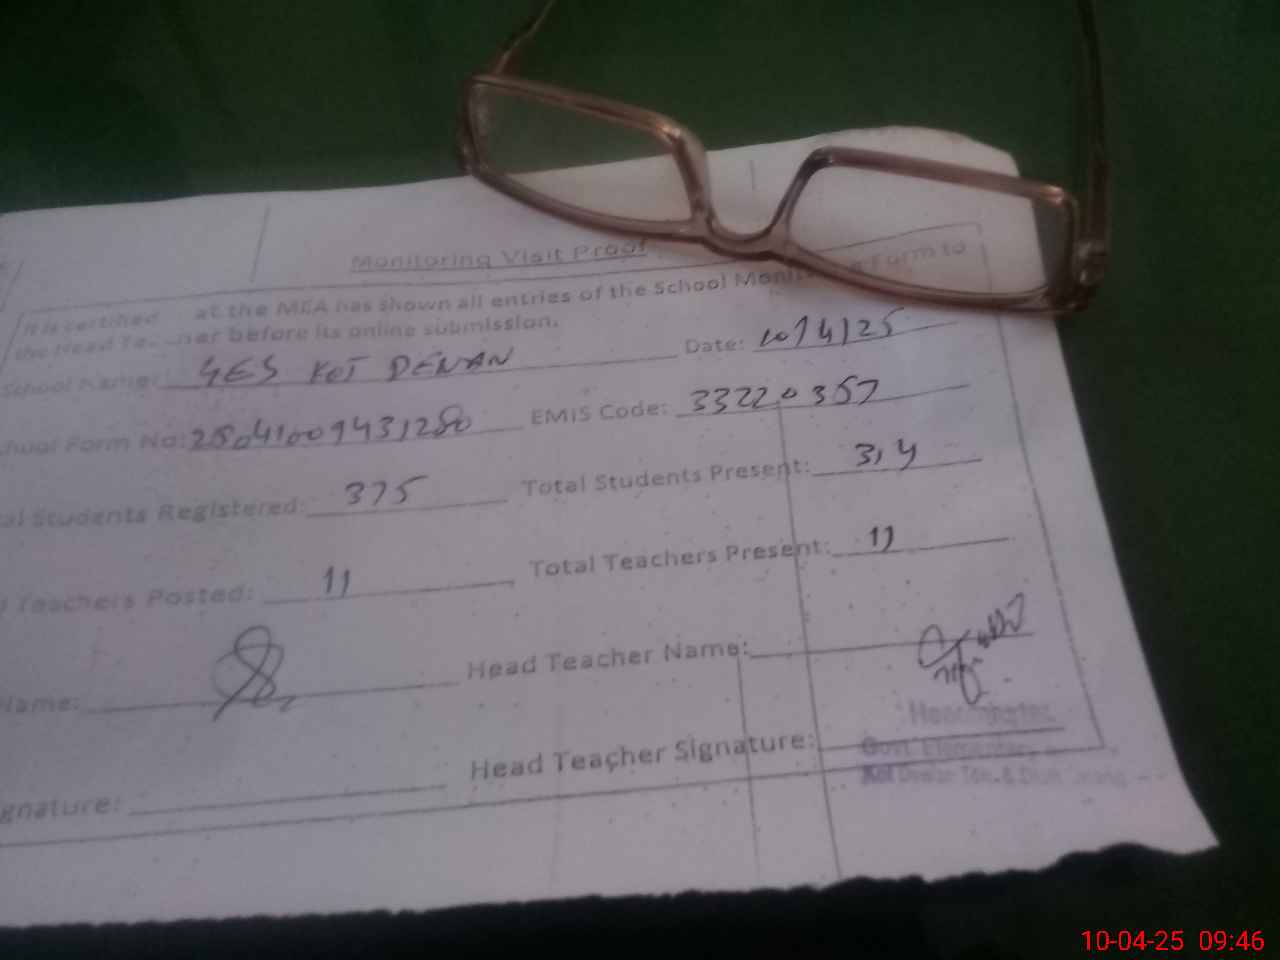 Monitoring Visit Proof
It is certified at the MEA has shown all entries of the School Form to
the Head before its online submission.
School Name: GES KOT DEWAN Date: 10/4/25
School Form No: 25041009431280 EMIS Code: 33220357
al Students Registered: 375 Total Students Present: 314
Teachers Posted: 11 Total Teachers Present: 11
Name: Head Teacher Name:
gnature: Head Teacher Signature:
Govt. Elementary
Kot Dewan
10-04-25 09:46